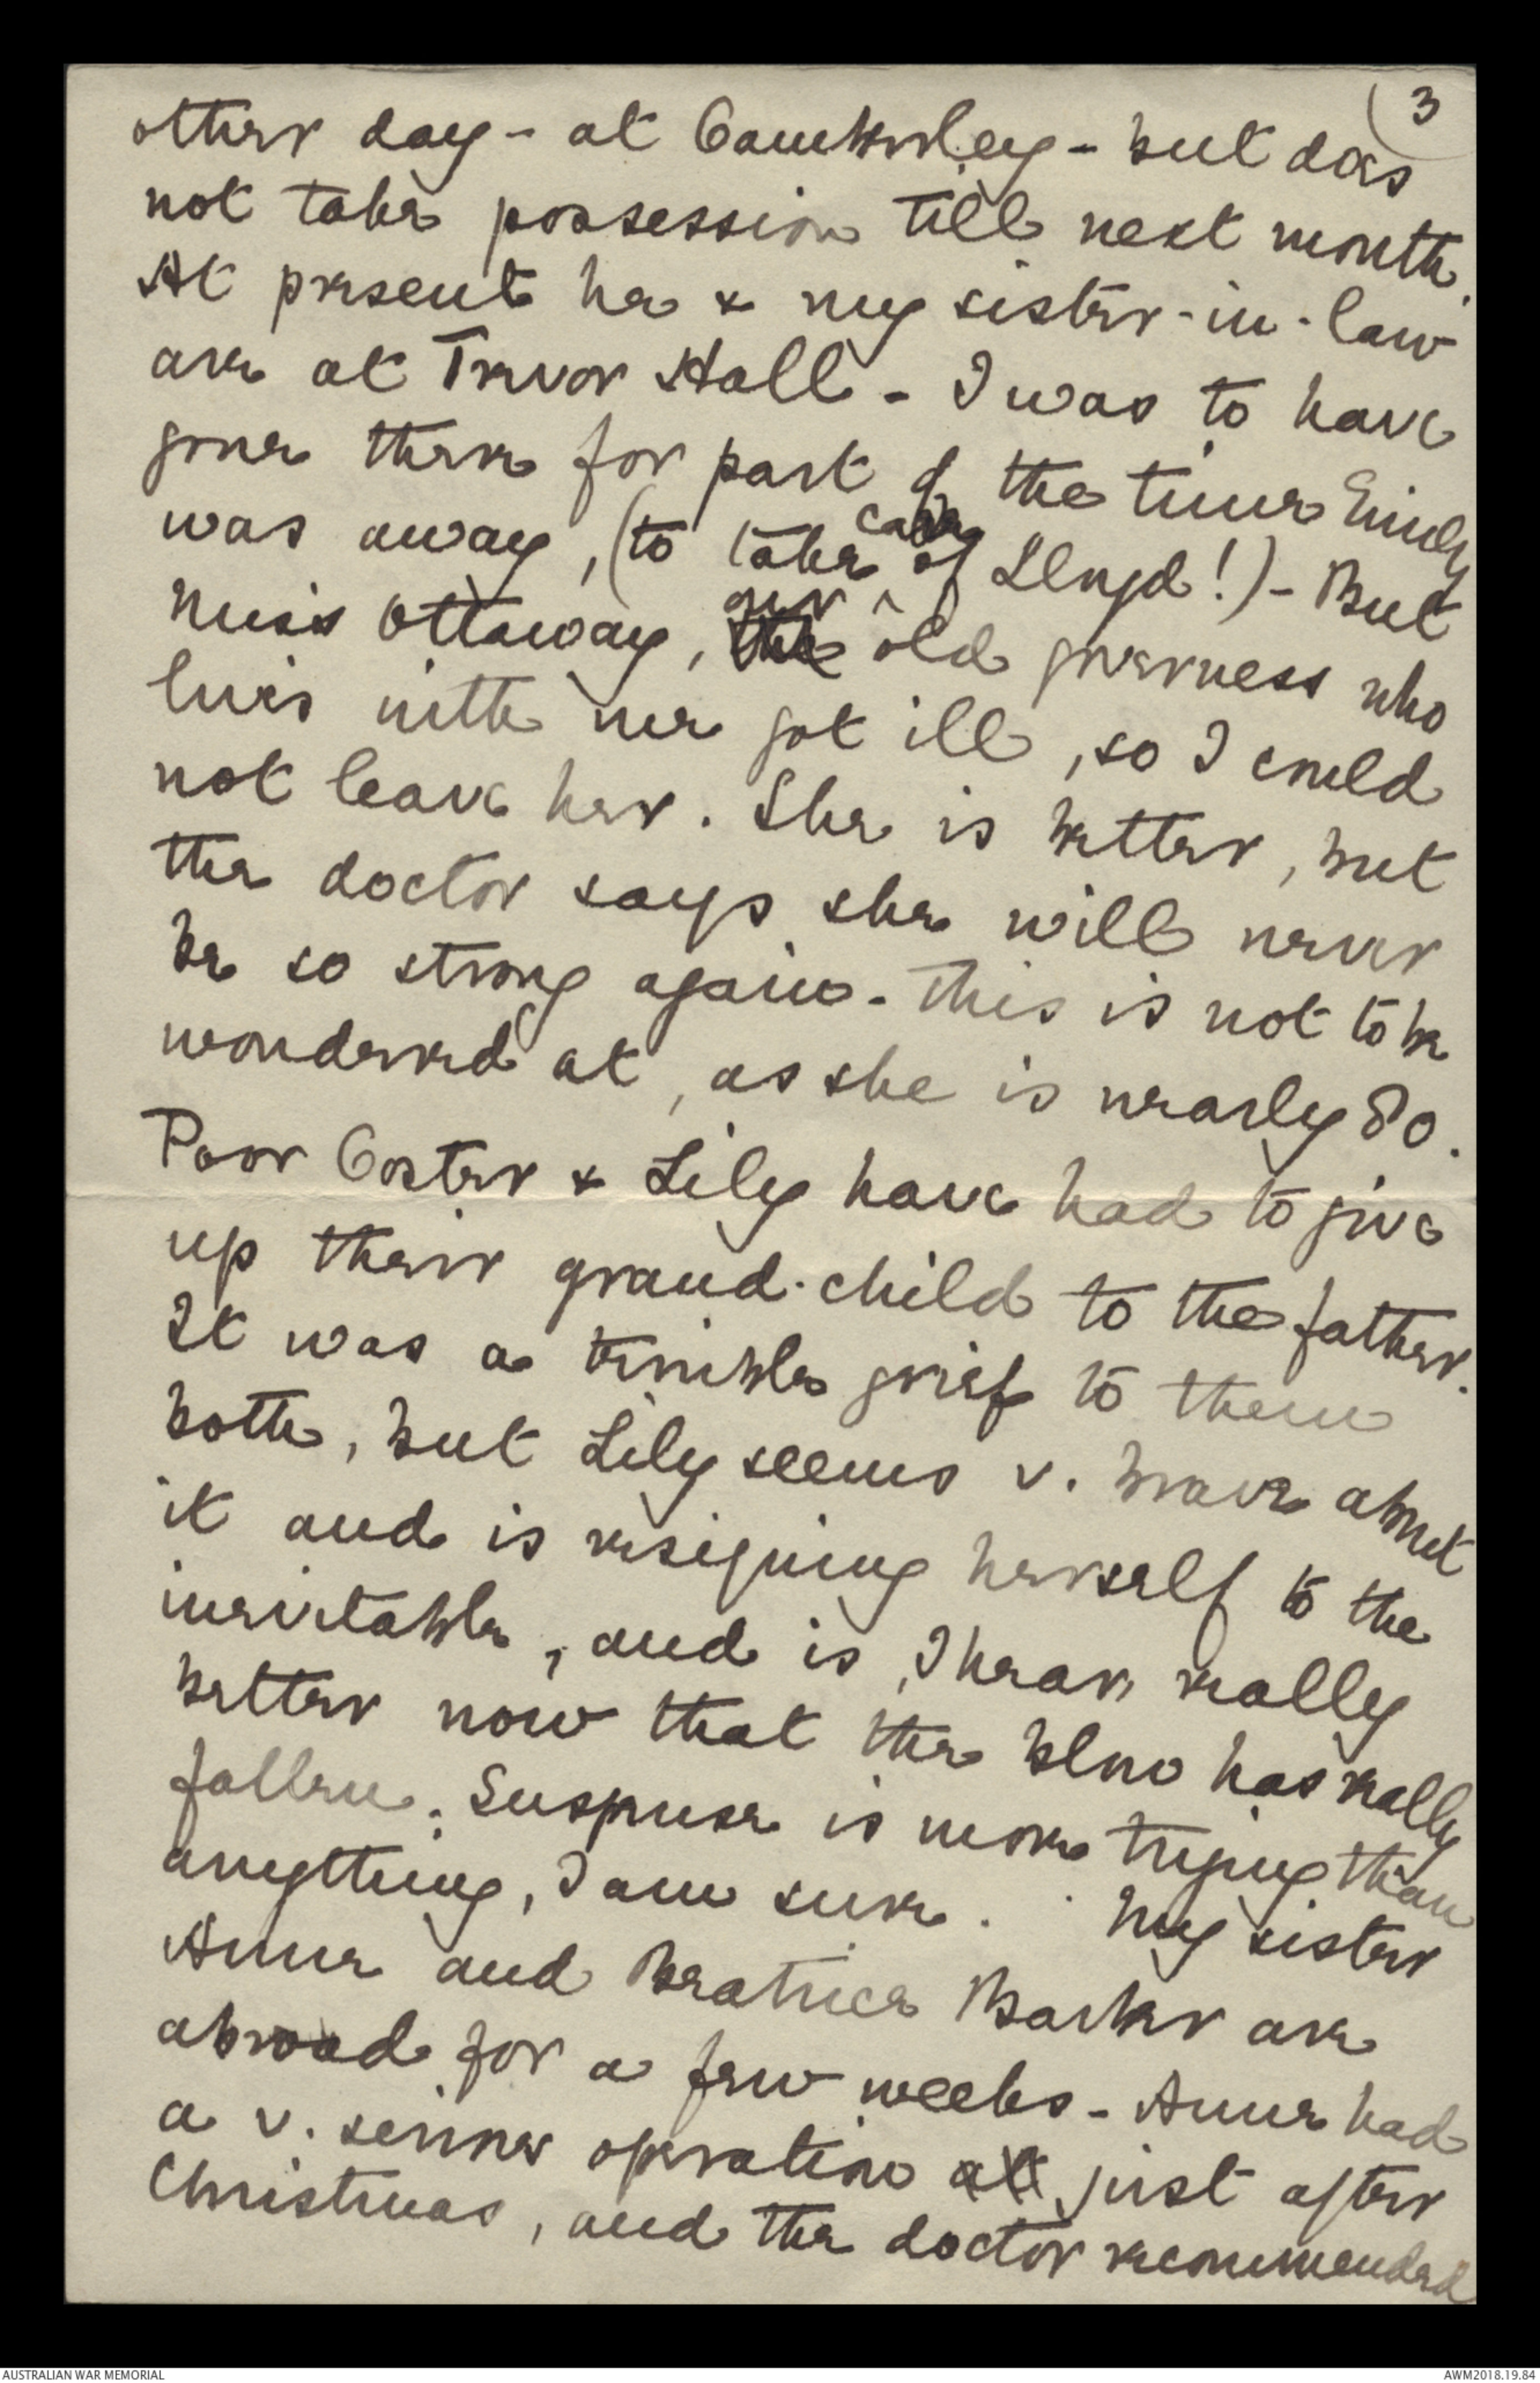 3
other day - at Camberley - but does
not take possession till next month.
At present he & my sister-in-law
are at Trevor Hall - I was to have
gone there for part of the time Emily
was away, (to take care of Lloyd!) - But
Miss Ottaway, our old governess who
lives with me got ill, so I could
not leave her. She is better, but
the doctor says she will never
be so strong again - This is not to be
wondered at, as she is nearly 80.
Poor Coster & Lily have had to give
up their grand-child to the father.
It was a terrible grief to them
both, but Lily seems v. brave about
it and is resigning herself to the
inevitable, and is, I hear, really
better now that the blow has really
fallen. Suspense is more trying than
anything, I am sure. My sister
Anne and Beatrice Barker are
abroad for a few weeks - Anne had
a v. serious operation at just after
Christmas, and the doctor recommended
AUSTRALIAN WAR MEMORIAL
AWM2018.19.84